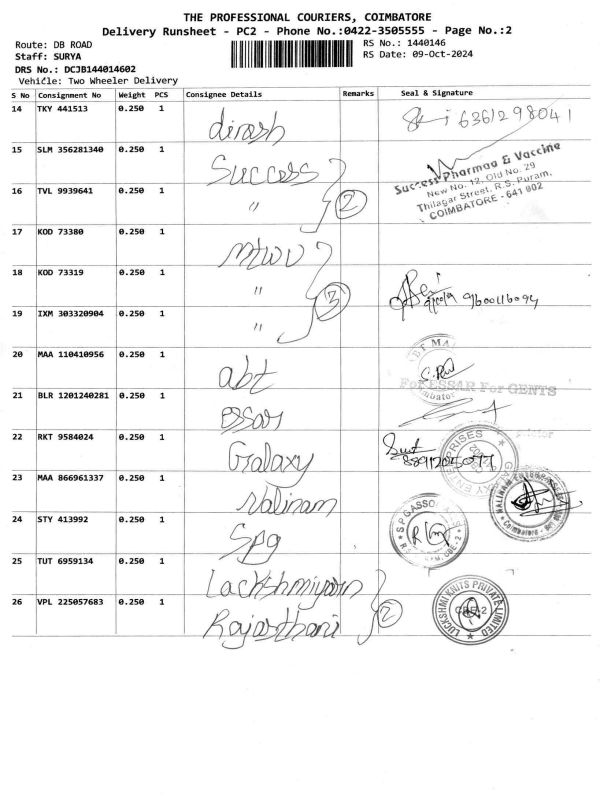 THE PROFESSIONAL COURIERS, COIMBATORE
Delivery Runsheet - PC2 - Phone No.:0422-3505555 - Page No.:2
Route: DB ROAD
RS No.: 1440146
Staff: SURYA
RS Date: 09-Oct-2024
DRS No.: DCJB144014602
Vehicle: Two Wheeler Delivery
S No Consignment No Weight PCS Consignee Details Remarks Seal & Signature
14 TKY 441513 0.250 1 dinesh 6361298041
15 SLM 356281340 0.250 1 Success
Success Pharmaa & Vaccine
New No. 12, Old No. 29
Thilagar Street, R.S. Puram,
COIMBATORE - 641 002
16 TVL 9939641 0.250 1 " 2
17 KOD 73380 0.250 1
18 KOD 73319 0.250 1 " 3 9600116094
19 IXM 303320904 0.250 1 "
20 MAA 110410956 0.250 1 abt
21 BLR 1201240281 0.250 1 essar
For ESSAR For GENTS
22 RKT 9584024 0.250 1 Galaxy
GALAXY ENTERPRISES
23 MAA 866961337 0.250 1 Nalinam
NALINAM ENTERPRISES
Coimbatore
24 STY 413992 0.250 1 Spg
SPG ASSOCIATES
25 TUT 6959134 0.250 1
26 VPL 225057683 0.250 1 Rajasthani 2
LUCKSHMI KNITS PRIVATE LIMITED
CBE-2